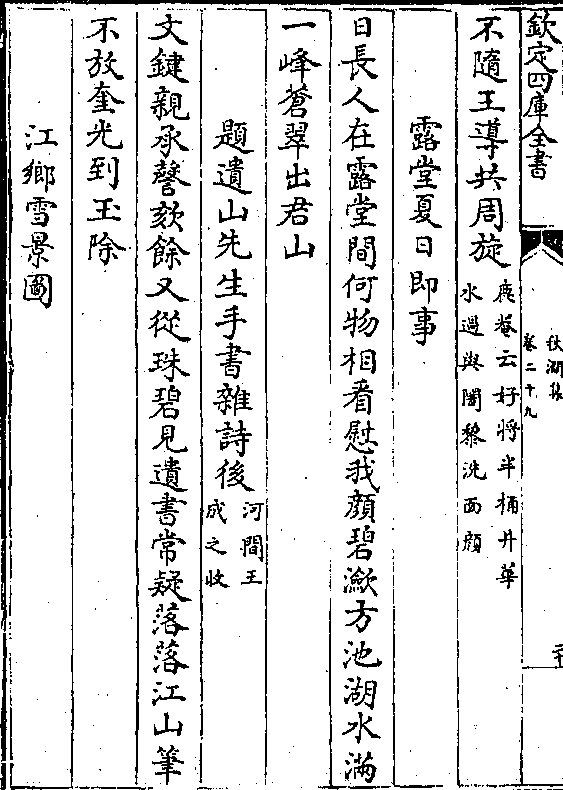 欽定四庫全書
秋澗集
卷二十九
不隨王導共周旋
鹿菴云好將半桶丹華
水過與闍黎洗面顔
露堂夏日即事
日長人在露堂間何物相看慰我顔碧瀲方池湖水滿
一峰蒼翠出君山
題遺山先生手書雜詩後
河間王
成之收
文鍵親承謦欬餘又從珠碧見遺書常疑落落江山筆
不放奎光到玉除
江鄉雪景圖